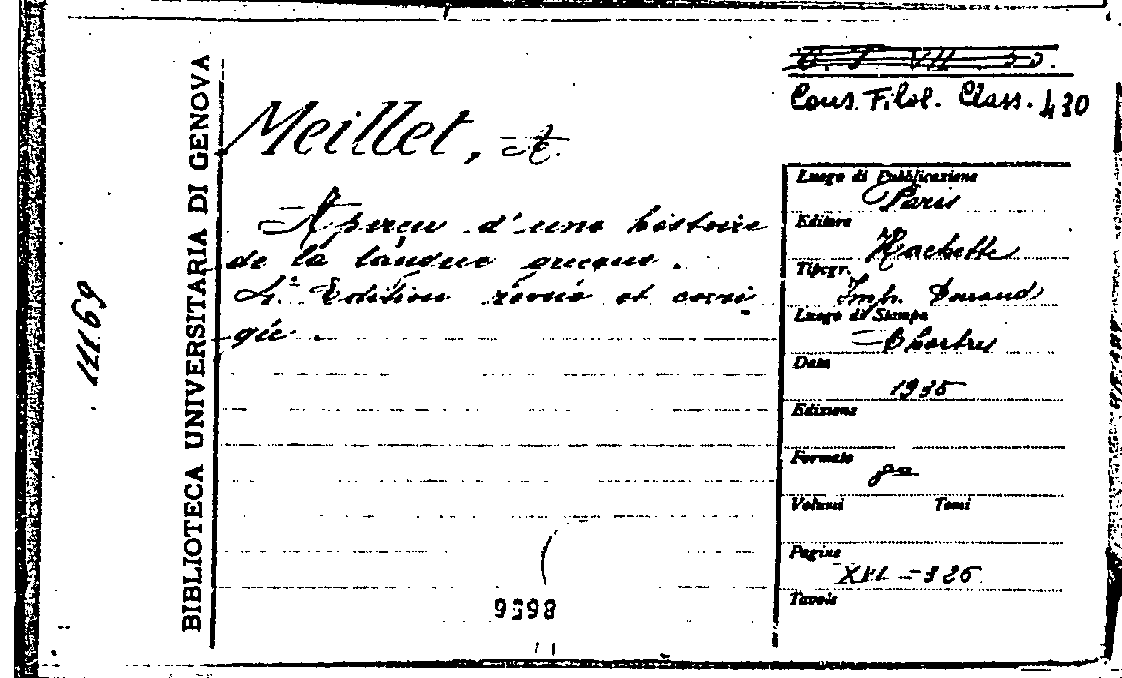 BIBLIOTECA UNIVERSITARIA DI GENOVA
11169
Cons. Filol. Class. 430
Meillet, A.
Aperçu d'une histoire
de la langue grecque.
4ª Edition revue et corri
gée.
Luogo di Pubblicazione
Paris
Editore
Hachette
Tipogr.
Imp. Durand
Luogo di Stampa
Chartres
Data
1935
Edizione
Formato
8º
Volumi Tomi
Pagine
XVI - 325
Tavole